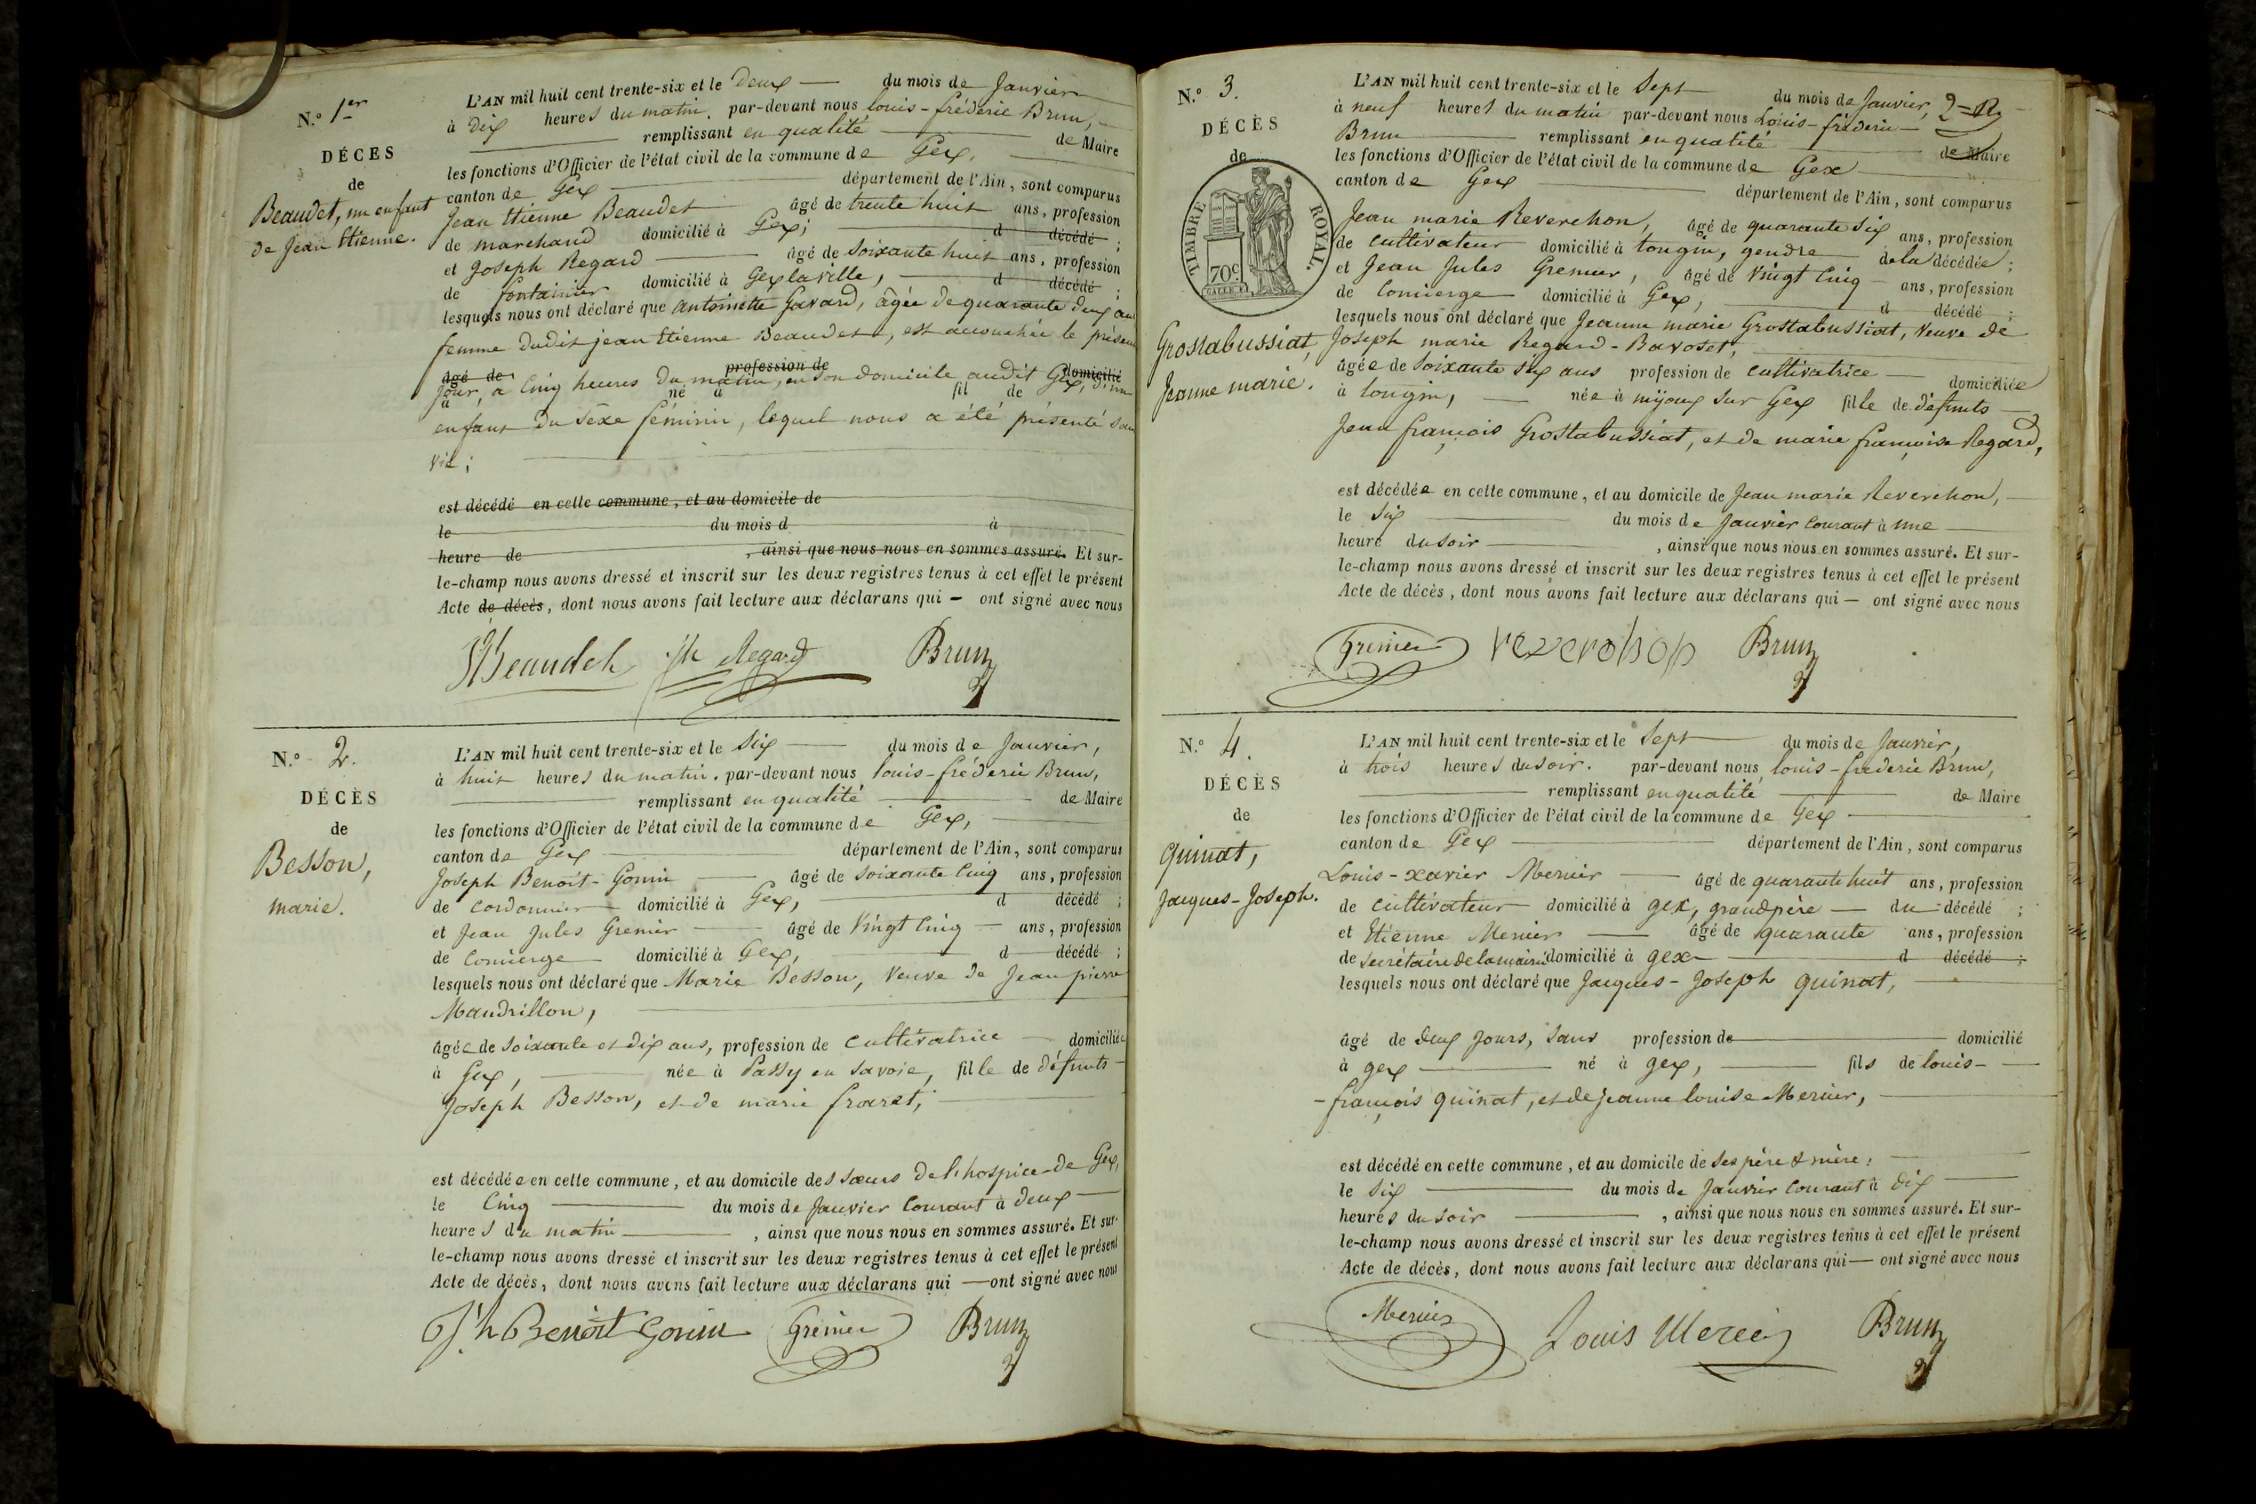 N.º 1er
DÉCES
de
Beaudet, un enfant
de Jean Etienne.
L'AN mil huit cent trente-six et le deux — du mois de Janvier
à dix heures du matin. par-devant nous Louis-fréderic Brun,
remplissant en qualité de Maire
les fonctions d'Officier de l'état civil de la commune de Gex,
canton de Gex département de l'Ain, sont comparus
Jean Etienne Beaudet âgé de trente huit ans, profession
de marchand domicilié à Gex; d décédé ;
et Joseph Regard âgé de soixante huit ans, profession
de fontainier domicilié à Gex la ville, d décédé ;
lesquels nous ont déclaré que antoinette Gavard, âgée de quarante deux ans
femme dudit jean Etienne Beaudet, est accouchée le présent
âgé de profession de domicilié
Jour, à Cinq heures du matin, en son domicile audit Gex, d'un
à né à fil de
enfant du sèxe féminin, lequel nous a été présenté sans
vie;
est décédé en celle commune, et au domicile de
le du mois d à
heure de , ainsi que nous nous en sommes assuré. Et sur-
le-champ nous avons dressé et inscrit sur les deux registres tenus à cet effet le présent
Acte de décès, dont nous avons fait lecture aux déclarans qui — ont signé avec nous
Beaudet Jh Regard Brun
N.º 2.
DÉCÈS
de
Besson,
marie.
L'AN mil huit cent trente-six et le Six — du mois de Janvier,
à huit heures du matin. par-devant nous louis-fréderic Brun,
remplissant en qualité de Maire
les fonctions d'Officier de l'état civil de la commune de Gex,
canton de Gex département de l'Ain, sont comparus
Joseph Benoit-Gonin âgé de soixante Cinq ans, profession
de cordonnier domicilié à Gex, d décédé ;
et Jean Jules Grenier âgé de Vingt Cinq — ans, profession
de Concierge domicilié à Gex, d décédé ;
lesquels nous ont déclaré que Marie Besson, Veuve de Jean pierre
Mandrillon,
âgée de soixante et dix ans, profession de Cultivatrice — domiciliée
à Gex, née à Passy en Savoie, fille de défunts
Joseph Besson, et de marie fraret,
est décédée en cette commune, et au domicile des sœurs de l'hospice de Gex,
le Cinq du mois de Janvier Courant à deux
heures du matin , ainsi que nous nous en sommes assuré. Et sur-
le-champ nous avons dressé et inscrit sur les deux registres tenus à cet effet le présent
Acte de décès, dont nous avons fait lecture aux déclarans qui — ont signé avec nous
Jh Benoit Gonin Grenier Brun
N.º 3.
DÉCÈS
de
TIMBRE ROYAL.
70c.
Grostabussiat,
Jeanne marie.
L'AN mil huit cent trente-six et le Sept du mois de Janvier,
à neuf heures du matin par-devant nous Louis-fréderic
Brun remplissant en qualité de Maire
les fonctions d'Officier de l'état civil de la commune de Gex
canton de Gex département de l'Ain, sont comparus
Jean marie Reverchon, âgé de quarante six ans, profession
de cultivateur domicilié à tougin, gendre de la décédée ;
et Jean Jules Grenier, âgé de Vingt Cinq — ans, profession
de Concierge domicilié à Gex, d décédé ;
lesquels nous ont déclaré que Jeanne marie Grostabussiat, Veuve de
Joseph marie Regard-Bavoset,
âgée de soixante six ans profession de cultivatrice — domiciliée
à tougin, — née à mijoux sur Gex fille de défunts
Jean françois Grostabussiat, et de marie françoise Regard,
est décédée en cette commune, et au domicile de Jean marie Reverchon,
le Six du mois de Janvier Courant à une
heure du soir , ainsi que nous nous en sommes assuré. Et sur-
le-champ nous avons dressé et inscrit sur les deux registres tenus à cet effet le présent
Acte de décès, dont nous avons fait lecture aux déclarans qui — ont signé avec nous
Grenier reverchon Brun
N.º 4.
DÉCÈS
de
Quinat,
Jacques-Joseph.
L'AN mil huit cent trente-six et le Sept du mois de Janvier,
à trois heures du soir. par-devant nous louis-frederic Brun,
remplissant en qualité de Maire
les fonctions d'Officier de l'état civil de la commune de Gex
canton de Gex département de l'Ain, sont comparus
Louis-xavier Mercier — âgé de quarante huit ans, profession
de cultivateur domicilié à gex, grandpère — du décédé ;
et Etienne Mercier — âgé de quarante ans, profession
de secrétaire de la mairie domicilié à gex d décédé ;
lesquels nous ont déclaré que Jacques-Joseph quinat,
âgé de deux jours, sans profession de domicilié
à gex né à gex, fils de louis-
-françois quinat, et de jeanne louise Mercier,
est décédé en cette commune, et au domicile de ses père & mère,
le Six du mois de Janvier Courant à dix
heures du soir , ainsi que nous nous en sommes assuré. Et sur-
le-champ nous avons dressé et inscrit sur les deux registres tenus à cet effet le présent
Acte de décès, dont nous avons fait lecture aux déclarans qui — ont signé avec nous
Mercier Louis Mercier Brun